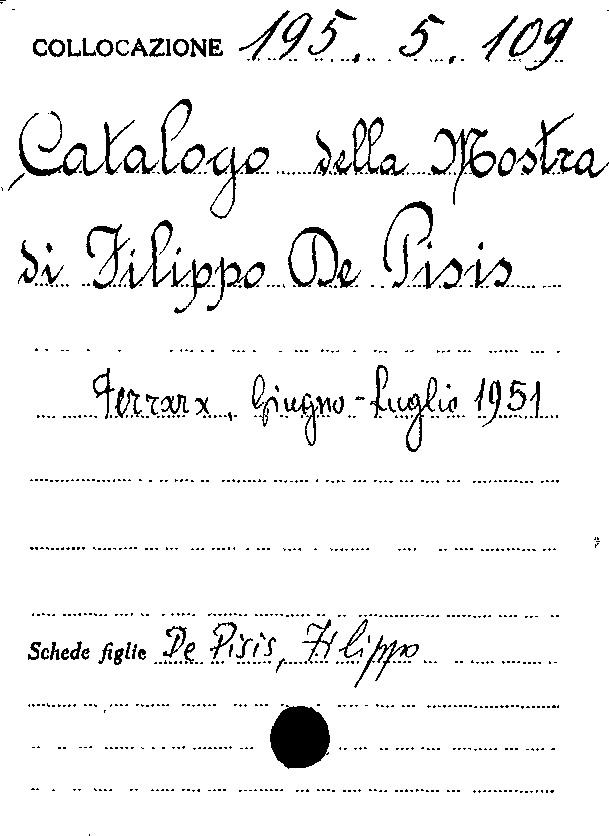 COLLOCAZIONE 195. 5. 109
Catalogo della Mostra
di Filippo De Pisis
Ferrara, Giugno-Luglio 1951
Schede figlie De Pisis, Filippo